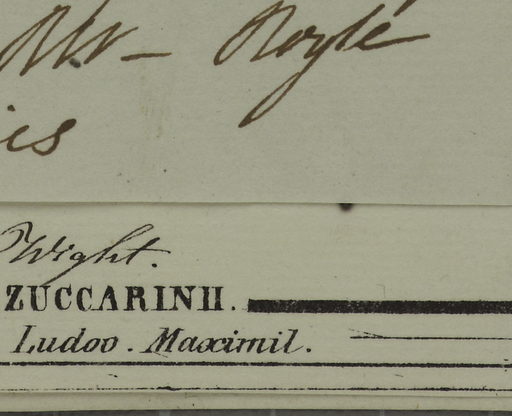 Mr - Royle
is
Wight.
ZUCCARINII.
Ludov. Maximil.